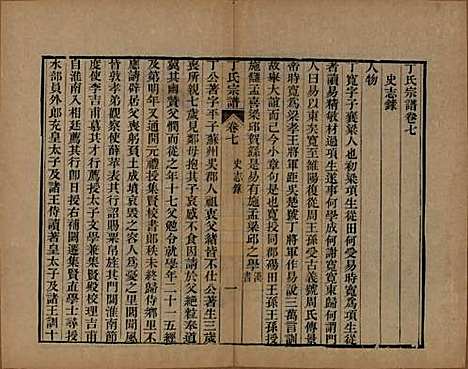 丁氏宗譜卷七
史志錄
人物
丁寬字子襄梁人也初梁項生從田何受易時寬為項生從
者讀易精敏材過項生遂事何學成何謝寬寬東歸何謂門
人曰易以東矣寬至雒陽復從周王孫受古義號周氏傳景
帝時寬為梁孝王將軍距吳楚號丁將軍作易說三萬言訓
故舉大誼而已今小章句是也寬授同郡碭田王孫王孫授
施讎孟喜梁邱賀繇是易有施孟梁邱之學漢書
丁氏宗譜
卷七
史志錄
一
丁公著字平子蘇州吳郡人祖衷父緒皆不仕公著生三歲
喪所親七歲見鄰母抱其子哀感不食因請於父絕粒奉道
冀其幽贊父憫而從之年十七父勉令就學年二十一五經
及第明年又通開元禮授集賢校書郎秩未終歸侍鄉里不
應請辟居父喪躬負土成墳哀毀之容人為憂之里閭聞風
敦孝弟觀察使薛苹表其行詔賜粟帛旌其門閭淮南節
度使李吉甫慕其才薦授太子文學兼集賢殿校理吉甫
自淮南入相廷薦其行即日授右補闕遷集賢直學士尋授
水部員外郎充皇太子及諸王侍讀著皇太子及諸王訓十